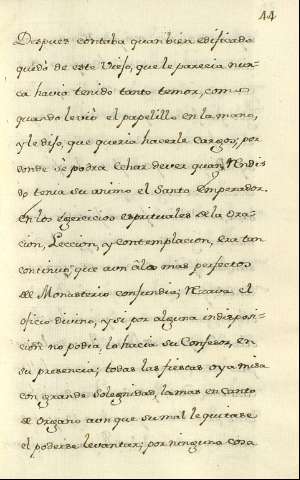 44
Despues contaba quan bien edificado
quedò de este Viejo, que le parecia nun-
ca havia tenido tanto temor, como
quando le viò el papelillo en la mano,
y le dijo, que queria hacerle Cargos; por
donde se podra echar de ver quan Rendi-
do tenia su animo el Santo Emperador.
En los egercicios espirituales de la Ora-
cion, Leccion, y contemplacion, era tan
continuo, que aun à los mas perfectos
del Monasterio confundia; Rezava el
oficio divino, y si por alguna indisposi-
cion no podia, lo hacia su Confesor, en
su presencia; todas las fiestas oya misa
con grande Solegnidad, la mas en Canto
de Organo aunque su mal le quitase
el poderse levantar; por ninguna cosa